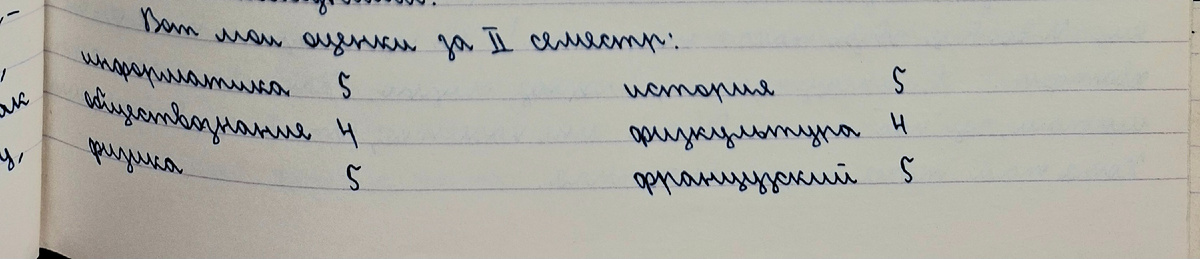 Вот мои оценки за II семестр:
информатика 5 история 5
обществознания 4 физкультура 4
физика 5 французский 5